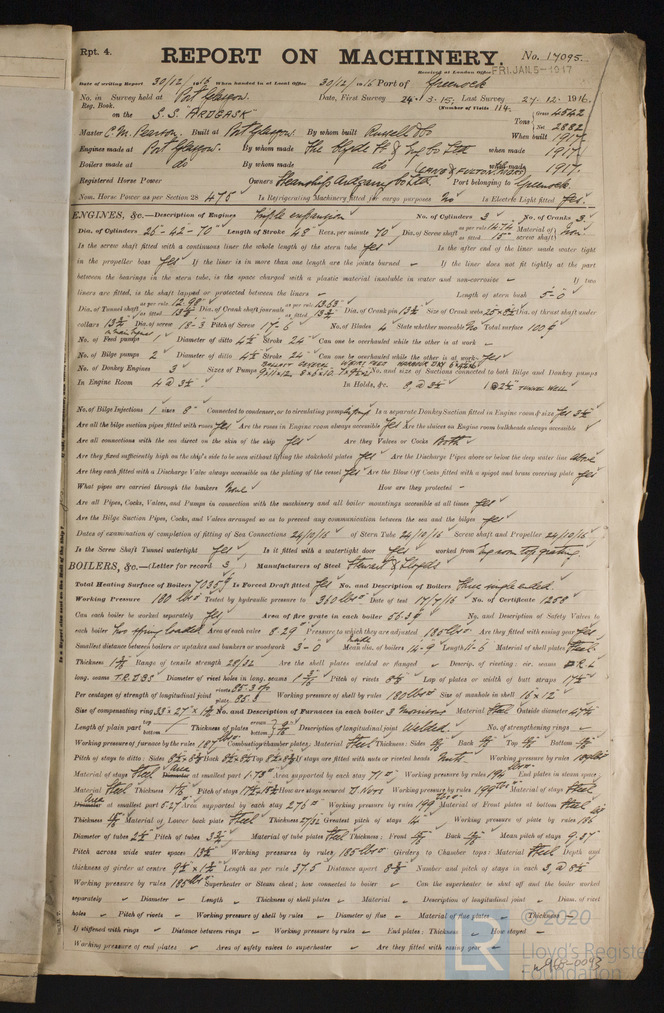 Rpt. 4. REPORT ON MACHINERY. No. 17095.
Received at London Office FRI. JAN 5 - 1917
Date of writing Report 30/12/1916 When handed in at Local Office 30/12/1916 Port of Greenock
No. in Reg. Book. Survey held at Port Glasgow. Date, First Survey 24.3.15, Last Survey 27.12.1916.
(Number of Visits 114)
on the S.S. ARDGASK Tons Gross 4542 Net 2882
Master C.M. Pearson. Built at Port Glasgow. By whom built Russell & Co When built 1917
Engines made at Port Glasgow. By whom made The Clyde when made 1917.
Boilers made at do By whom made do when made 1917.
Registered Horse Power Owners Port belonging to Greenock.
Nom. Horse Power as per Section 28 475 Is Refrigerating Machinery fitted for cargo purposes No Is Electric Light fitted Yes.
ENGINES, &c.—Description of Engines Triple expansion No. of Cylinders 3 No. of Cranks 3.
Dia. of Cylinders 26 - 42 - 70 Length of Stroke 48 Revs. per minute 70 Dia. of Screw shaft as per rule 14.74 as fitted 15 Material of screw shaft Iron
Is the screw shaft fitted with a continuous liner the whole length of the stern tube Yes Is the after end of the liner made water tight
in the propeller boss Yes If the liner is in more than one length are the joints burned – If the liner does not fit tightly at the part
between the bearings in the stern tube, is the space charged with a plastic material insoluble in water and non-corrosive – If two
liners are fitted, is the shaft lapped or protected between the liners – Length of stern bush 5-0
Dia. of Tunnel shaft as per rule 12.98 as fitted Dia. of Crank shaft journals as per rule 13.63 as fitted 13¾ Dia. of Crank pin 13¾ Size of Crank webs 25×8½ Dia. of thrust shaft under
collars 13¾ Dia. of screw 18-3 Pitch of Screw 17-6 No. of Blades 4 State whether moveable No Total surface 100
No. of Feed pumps Diameter of ditto 4½ Stroke 24 Can one be overhauled while the other is at work –
No. of Bilge pumps 2 Diameter of ditto 4½ Stroke 24 Can one be overhauled while the other is at work Yes
No. of Donkey Engines 3 Sizes of Pumps No. and size of Suctions connected to both Bilge and Donkey pumps
In Engine Room 4 @ 3½ In Holds, &c. 8, @ 3½ 1 @ 2½ TUNNEL WELL
No. of Bilge Injections 1 sizes 8" Connected to condenser, or to circulating pump Is a separate Donkey Suction fitted in Engine room & size Yes 3½
Are all the bilge suction pipes fitted with roses Yes Are the roses in Engine room always accessible Yes Are the sluices on Engine room bulkheads always accessible
Are all connections with the sea direct on the skin of the ship Yes Are they Valves or Cocks Both
Are they fixed sufficiently high on the ship's side to be seen without lifting the stokehold plates Yes Are the Discharge Pipes above or below the deep water line above
Are they each fitted with a Discharge Valve always accessible on the plating of the vessel Yes Are the Blow Off Cocks fitted with a spigot and brass covering plate Yes
What pipes are carried through the bunkers None How are they protected –
Are all Pipes, Cocks, Valves, and Pumps in connection with the machinery and all boiler mountings accessible at all times Yes
Are the Bilge Suction Pipes, Cocks, and Valves arranged so as to prevent any communication between the sea and the bilges Yes
Dates of examination of completion of fitting of Sea Connections 24/10/16 of Stern Tube 24/10/16 Screw shaft and Propeller 24/10/16
Is the Screw Shaft Tunnel watertight Yes Is it fitted with a watertight door Yes worked from top grating
BOILERS, &c.—(Letter for record S) Manufacturers of Steel Stewart & Lloyds
Total Heating Surface of Boilers 7035 Is Forced Draft fitted Yes No. and Description of Boilers Three single ended.
Working Pressure 180 lbs Tested by hydraulic pressure to 360 lbs Date of test 17/7/16 No. of Certificate 1258
Can each boiler be worked separately Yes Area of fire grate in each boiler 56.3 No. and Description of Safety Valves to
each boiler Two spring loaded Area of each valve 8.29 Pressure to which they are adjusted 185 lbs Are they fitted with easing gear Yes
Smallest distance between boilers or uptakes and bunkers or woodwork 3-0 Mean dia. of boilers 14-9 Length 11-6 Material of shell plates Steel
Thickness Range of tensile strength 28/32 Are the shell plates welded or flanged – Descrip. of riveting: cir. seams D.R.L
long. seams T.R.D.B.S Diameter of rivet holes in long. seams 1 3/16 Pitch of rivets 8⅛ Lap of plates or width of butt straps
Per centages of strength of longitudinal joint rivets plate 85.3 Working pressure of shell by rules 180 lbs Size of manhole in shell 16×12
Size of compensating ring No. and Description of Furnaces in each boiler 3 Morrisons Material Steel Outside diameter
Length of plain part top bottom Thickness of plates crown bottom Description of longitudinal joint Welded No. of strengthening rings –
Working pressure of furnace by the rules 187 lbs Combustion chamber plates: Material Steel Thickness: Sides Back Top Bottom
Pitch of stays to ditto: Sides Back Top If stays are fitted with nuts or riveted heads Nuts Working pressure by rules
Material of stays Steel Area at smallest part 1.73 Area supported by each stay 71 Working pressure by rules 194 End plates in steam space:
Material Steel Thickness Pitch of stays How are stays secured D Nuts Working pressure by rules Material of stays Steel
Area at smallest part 5.27 Area supported by each stay 276 Working pressure by rules 199 Material of Front plates at bottom Steel
Thickness Material of Lower back plate Steel Thickness 27/32 Greatest pitch of stays 14 Working pressure of plate by rules 186
Diameter of tubes 2½ Pitch of tubes 3¾ Material of tube plates Steel Thickness: Front Back Mean pitch of stays 9.37
Pitch across wide water spaces 13½ Working pressures by rules 185 lbs Girders to Chamber tops: Material Steel Depth and
thickness of girder at centre Length as per rule 37.5 Distance apart Number and pitch of stays in each 3, @ 8½
Working pressure by rules 185 lbs Superheater or Steam chest; how connected to boiler – Can the superheater be shut off and the boiler worked
separately – Diameter – Length – Thickness of shell plates – Material – Description of longitudinal joint – Diam. of rivet
holes – Pitch of rivets – Working pressure of shell by rules – Diameter of flue – Material of flue plates – Thickness –
If stiffened with rings – Distance between rings – Working pressure by rules – End plates: Thickness – How stayed –
Working pressure of end plates – Area of safety valves to superheater – Are they fitted with easing gear –
© 2020
LR Lloyd's Register Foundation
W966-0093